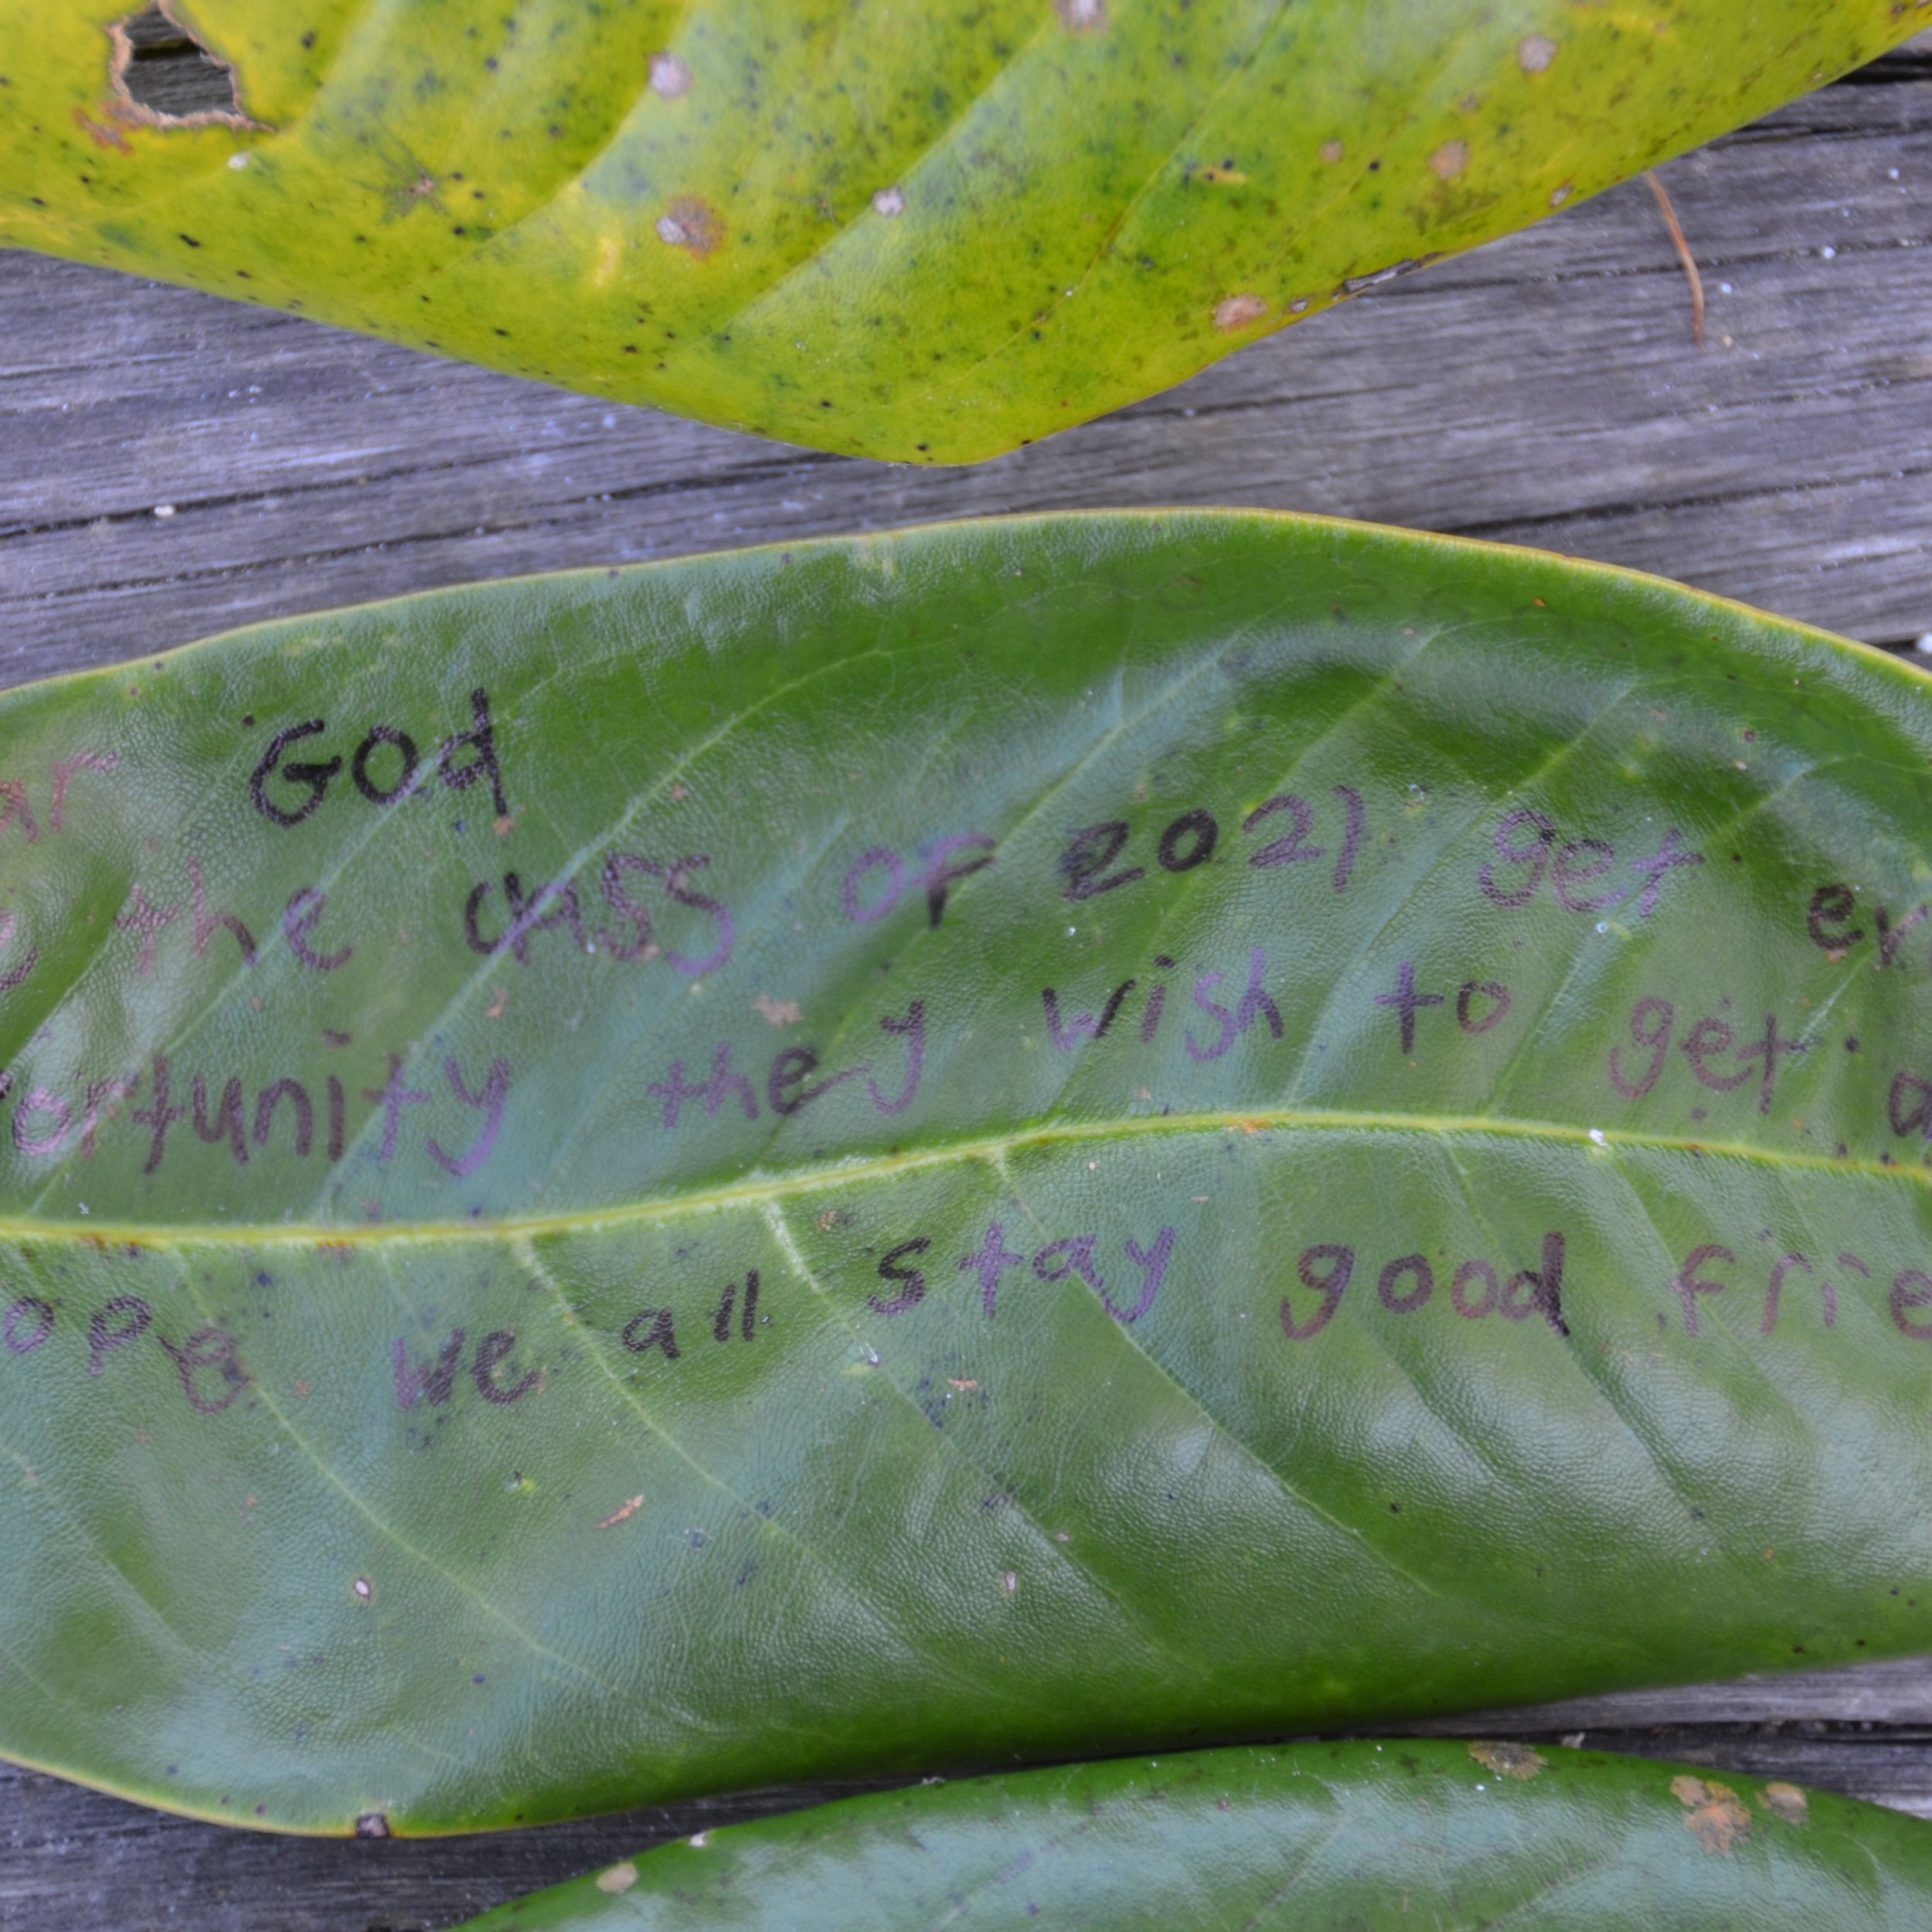 ar God
e the class of 2021 get ev
ortunity they wish to get a
ope we all stay good frie